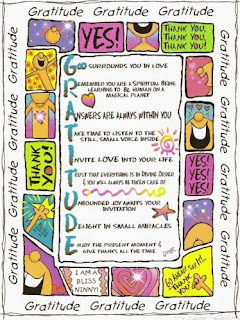 Gratitude Gratitude Gratitude
YES!
THANK YOU,
THANK YOU,
THANK YOU!
SURROUNDS YOU IN LOVE
REMEMBER YOU ARE A SPIRITUAL BEING
LEARNING TO BE HUMAN ON A
MAGICAL PLANET
ANSWERS ARE ALWAYS WITHIN YOU
TAKE TIME TO LISTEN TO THE
STILL, SMALL VOICE INSIDE
INVITE LOVE INTO YOUR LIFE
TRUST THAT EVERYTHING IS IN DIVINE ORDER
& YOU WILL ALWAYS BE TAKEN CARE OF
UNBOUNDED JOY AWAITS YOUR
INVITATION
DELIGHT IN SMALL MIRACLES
ENJOY THE PRESENT MOMENT &
GIVE THANKS ALL THE TIME
THANK
YOU!
YES!
YES!
YES!
I AM A
BLISS
NINNY!
Gratitude Gratitude Gratitude
Gratitude Gratitude Gratitude Gratitude
Gratitude Gratitude Gratitude Gratitude